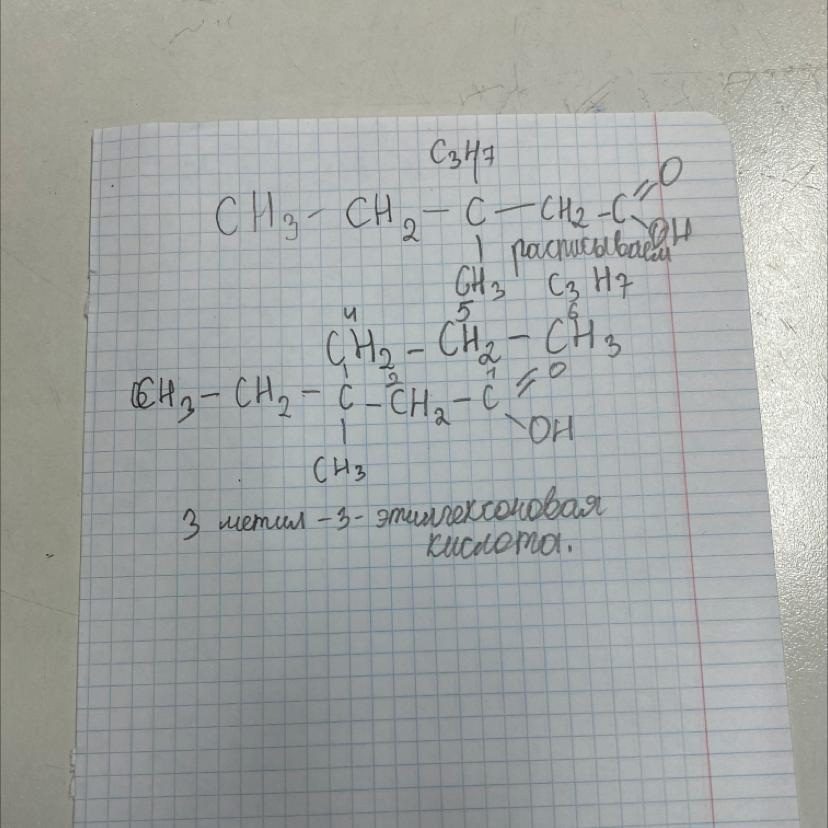 C3H7
CH3 - CH2 - C - CH2 - C = O
OH
расписываем
CH3 C3H7
4 5 6
CH2 - CH2 - CH3
2 1
CH3 - CH2 - C - CH2 - C = O
OH
CH3
3 метил -3- этилгексоновая
кислота.